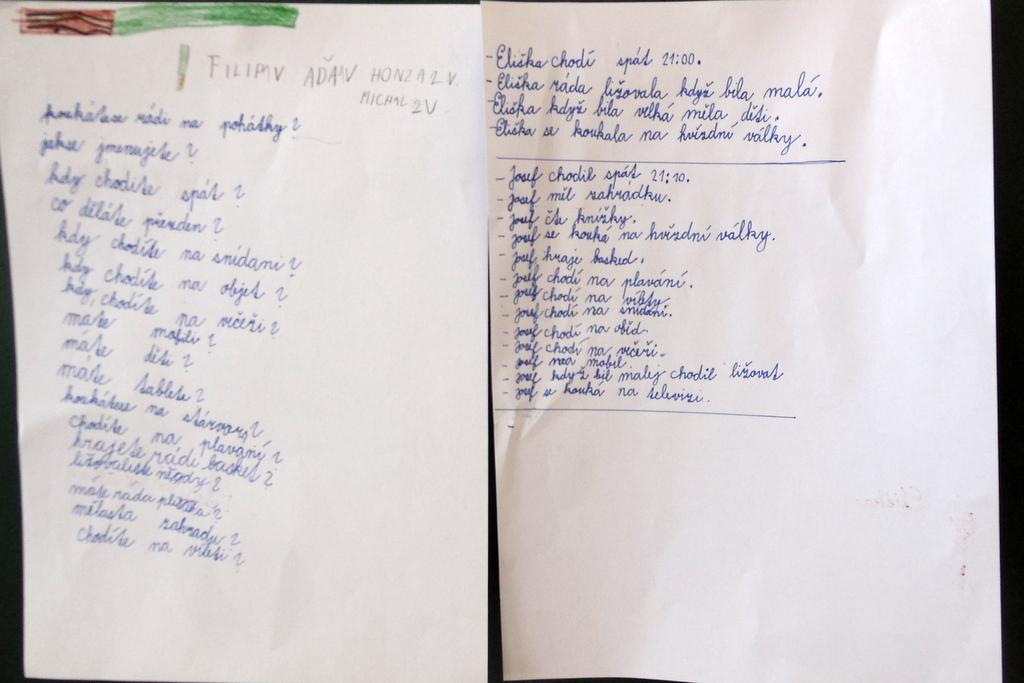 FILIP V ADAM V HONZA 2 V.
MICHAL 2V
koukátese rádi na pohátky?
jakse jmenujete?
kdy chodíte spát?
co děláte přezden?
kdy chodíte na snídani?
kdy chodíte na objet?
kdy chodíte na vičeži?
mate mobili?
máte děti?
maťe tablete?
koukátese na stárvors?
chodíte na plavaní?
hrajete rádi basket?
ližovaliste někdy?
máte ráda
mělasta zahradu?
chodíte na vileti?
- Eliška chodí spát 21:00.
- Eliška ráda ližovala když bila malá.
- Eliška když bila velká měla děti.
- Eliška se koukala na hvízdní války.
- Josef chodil spát 21:10.
- Josef měl zahrádku.
- Josef čte knížky.
- Josef se kouká na hvízdní války.
- Josef hraje basked.
- Josef chodí na plavání.
- Josef chodí na vílety.
- Josef chodí na snídani.
- Josef chodí na oběd.
- Josef chodí na vičeři.
- Josef mobil.
- Josef když bil malej chodil ližovat
- Josef se kouká na televizi.
-